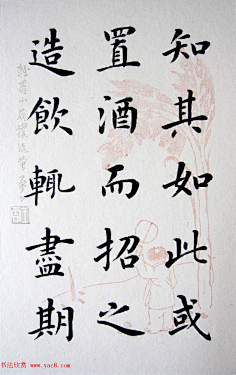 知其如此或
置酒而招之
造飲輒盡期
书法欣赏